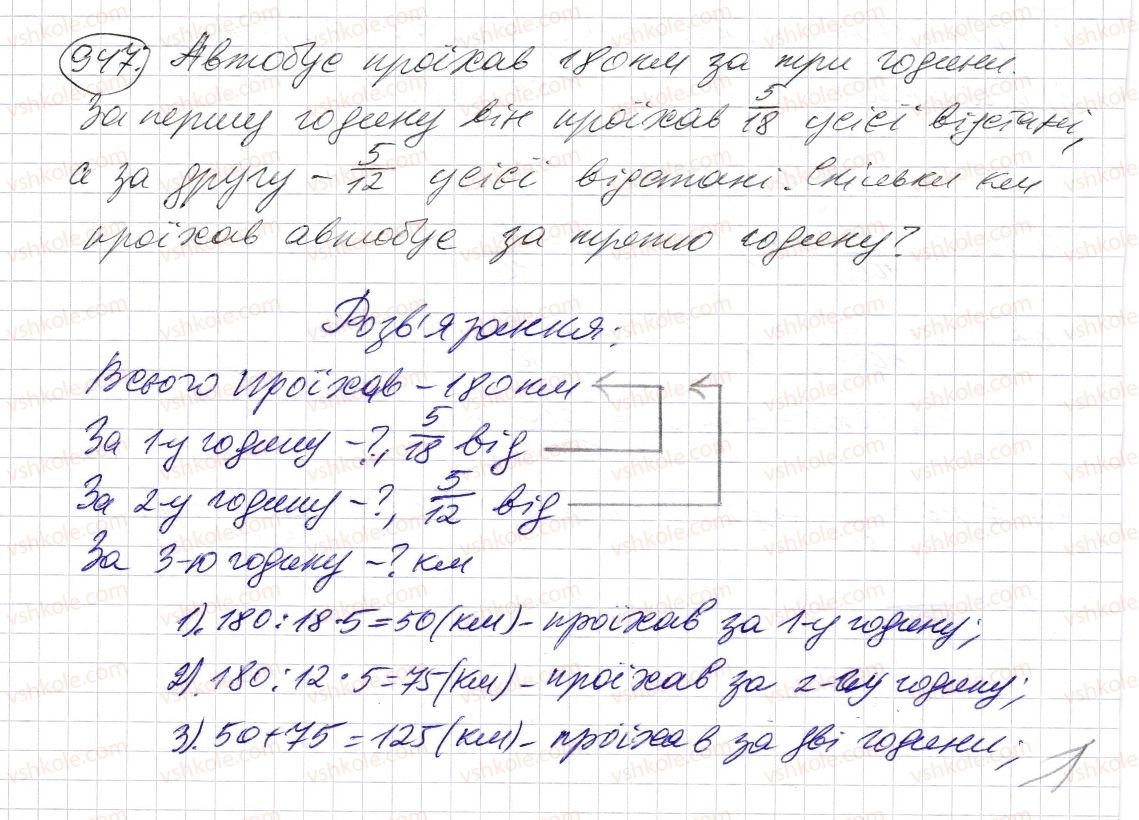 947. Автобус проїхав 180 км за три години.
За першу годину він проїхав 5/18 усієї відстані,
а за другу – 5/12 усієї відстані. Скільки км
проїхав автобус за третю годину?
Розв'язання:
Всього проїхав – 180 км
За 1-у годину – ?, 5/18 від
За 2-у годину – ?, 5/12 від
За 3-ю годину – ? км
1). 180 : 18 · 5 = 50 (км) – проїхав за 1-у годину;
2). 180 : 12 · 5 = 75 (км) – проїхав за 2-у годину;
3). 50 + 75 = 125 (км) – проїхав за дві години;